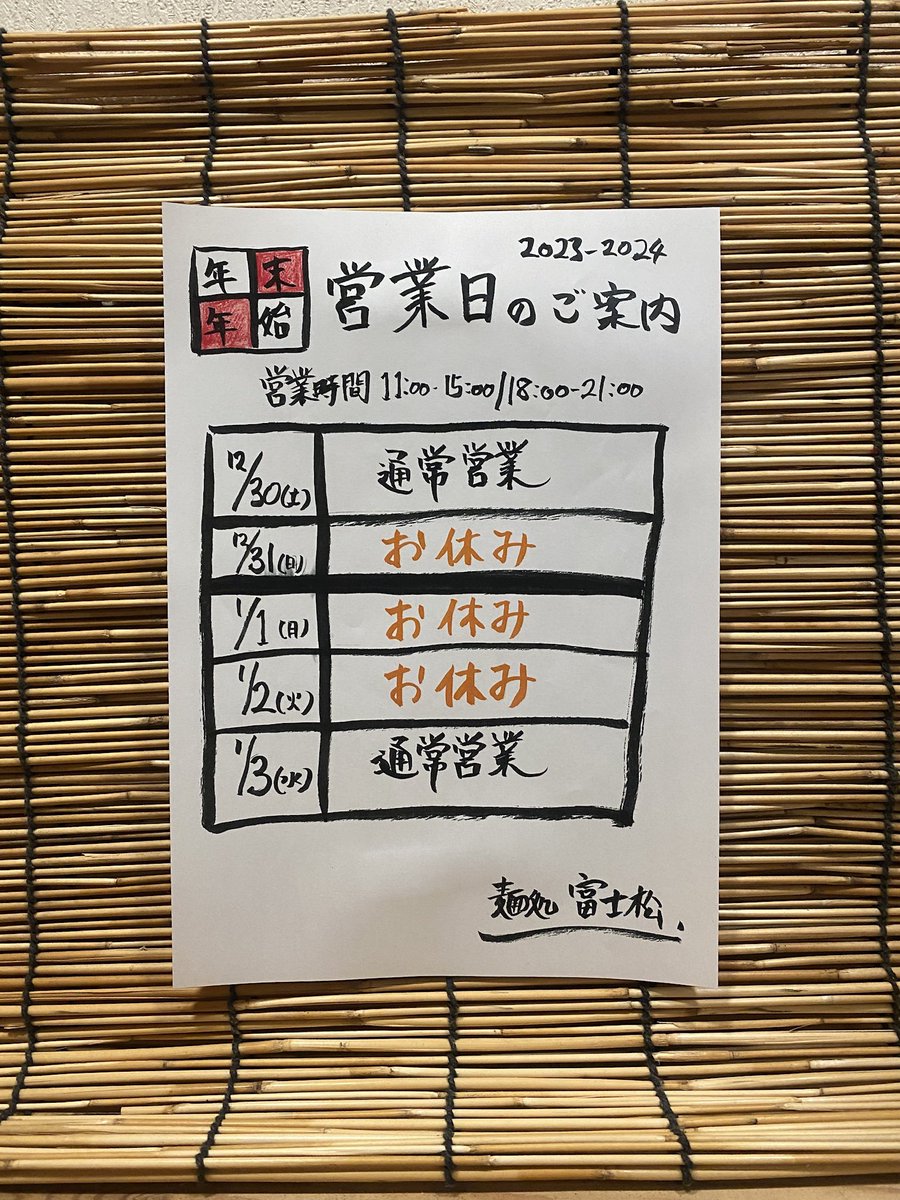 2023-2024
年末年始 営業日のご案内
営業時間 11:00-15:00/18:00-21:00
12/30(土) 通常営業
12/31(日) お休み
1/1(月) お休み
1/2(火) お休み
1/3(水) 通常営業
麺処 富士松.